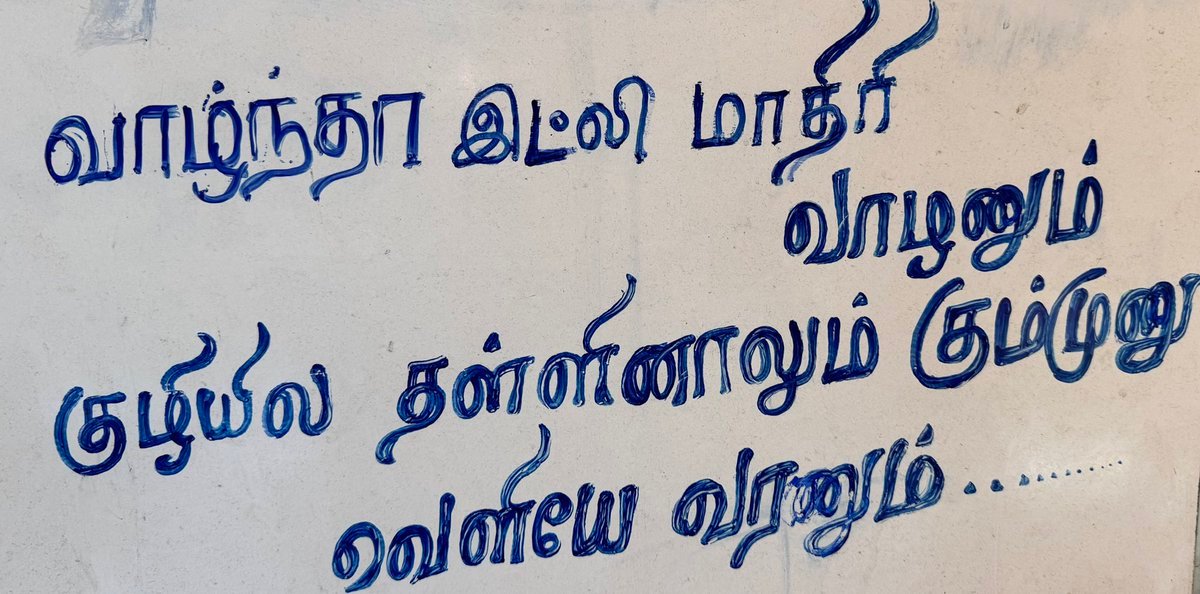 வாழ்ந்தா இட்லி மாதிரி
வாழனும்
குழியில தள்ளினாலும் கும்முனு
வெளியே வரனும்..........